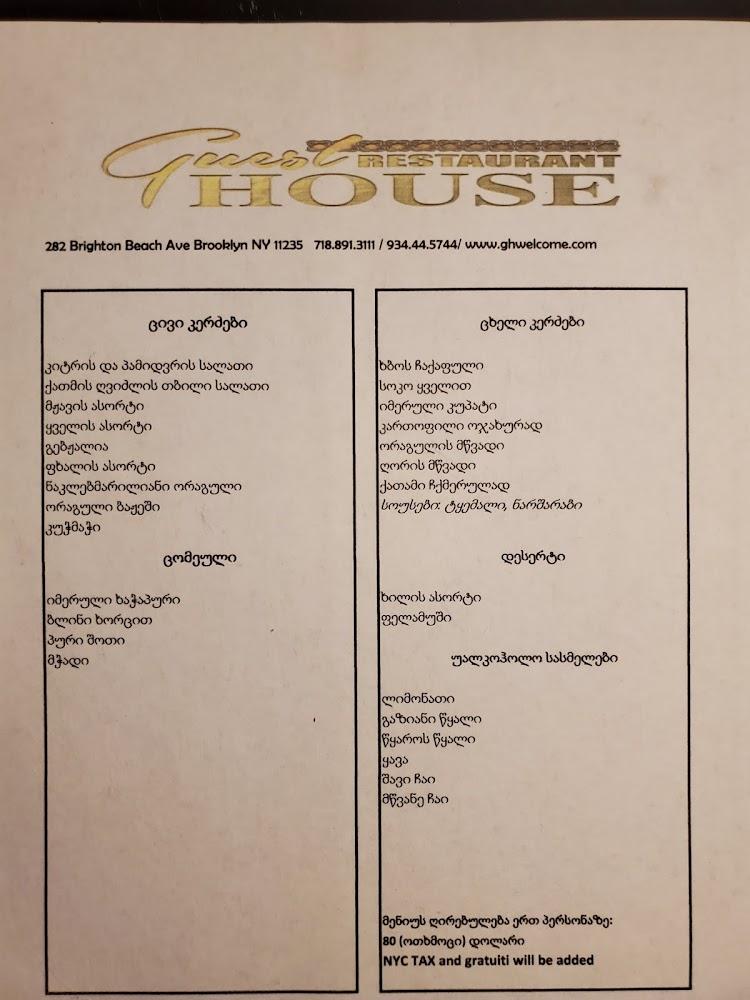 Guest RESTAURANT
HOUSE
282 Brighton Beach Ave Brooklyn NY 11235 718.891.3111 / 934.44.5744/ www.ghwelcome.com
ცივი კერძები
კიტრის და პამიდვრის სალათი
ქათმის ღვიძლის თბილი სალათი
მჟავის ასორტი
ყველის ასორტი
გებჟალია
ფხალის ასორტი
ნაკლებმარილიანი ორაგული
ორაგული ბაჟეში
კუჭმაჭი
ცომეული
იმერული ხაჭაპური
ბლინი ხორცით
პური შოთი
მჭადი
ცხელი კერძები
ხბოს ჩაქაფული
სოკო ყველით
იმერული კუპატი
კართოფილი ოჯახურად
ორაგულის მწვადი
ღორის მწვადი
ქათამი ჩქმერულად
სოუსები: ტყემალი, ნარშარაბი
დესერტი
ხილის ასორტი
ფელამუში
უალკოჰოლო სასმელები
ლიმონათი
გაზიანი წყალი
წყაროს წყალი
ყავა
შავი ჩაი
მწვანე ჩაი
მენიუს ღირებულება ერთ პერსონაზე:
80 (ოთხმოცი) დოლარი
NYC TAX and gratuiti will be added